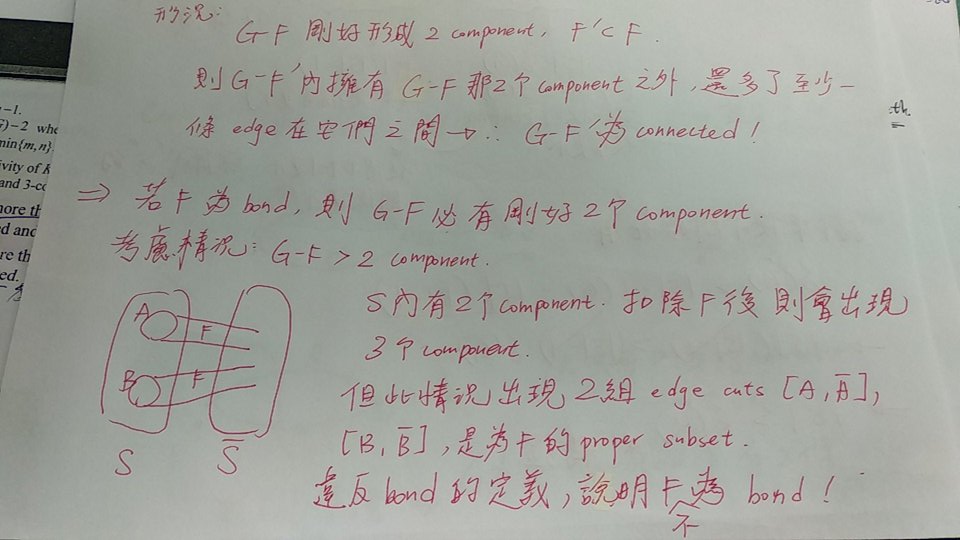 形況:
G-F 剛好形成 2 component, F'⊂F.
則 G-F' 內擁有 G-F 那2个 component 之外, 還多了至少一
條 edge 在它們之間 → ∴ G-F' 為 connected!
⇒ 若 F 為 bond, 則 G-F 必有剛好 2个 component.
考慮情況: G-F > 2 component.
S內有2个component. 扣除F後則會出現
3个component.
但此情況出現2組 edge cuts [A, A̅],
[B, B̅], 是為F的 proper subset.
違反bond的定義, 說明 F 不為 bond!
A F
B F
S S̅
-1.
)-2 whe
min{m, n}
ivity of K
and 3-co
more th
ed and
re th
ed.
th